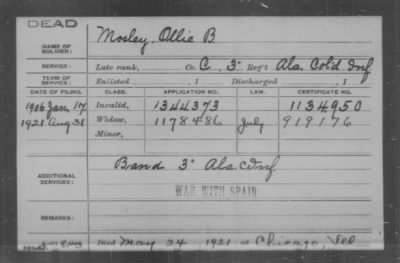 DEAD
NAME OF SOLDIER: Mosley, Ollie B.
SERVICE: Late rank, Co. C, 3" Reg't Ala. Col'd Inf
TERM OF SERVICE: Enlisted , 1 Discharged , 1
DATE OF FILING. CLASS. APPLICATION NO. LAW. CERTIFICATE NO.
1916 Jan. 17. Invalid, 1344373 1134950
1921 Aug 31 Widow, 1178486 July 919176
Minor,
ADDITIONAL SERVICES: Band 3" Ala
WAR WITH SPAIN
REMARKS:
Died May 24, 1921 at Chicago, Ill